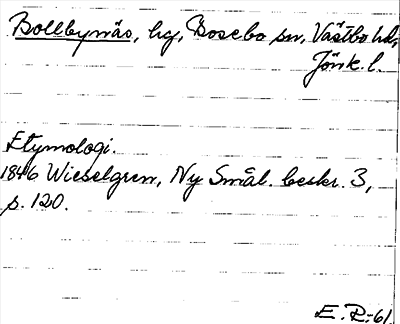 Bollbynäs, hg, Bosebo sn, Västbo hd,
Jönk. l.
Etymologi.
1846 Wieselgren, Ny Smål. beskr. 3,
p. 120.
E. R-61.